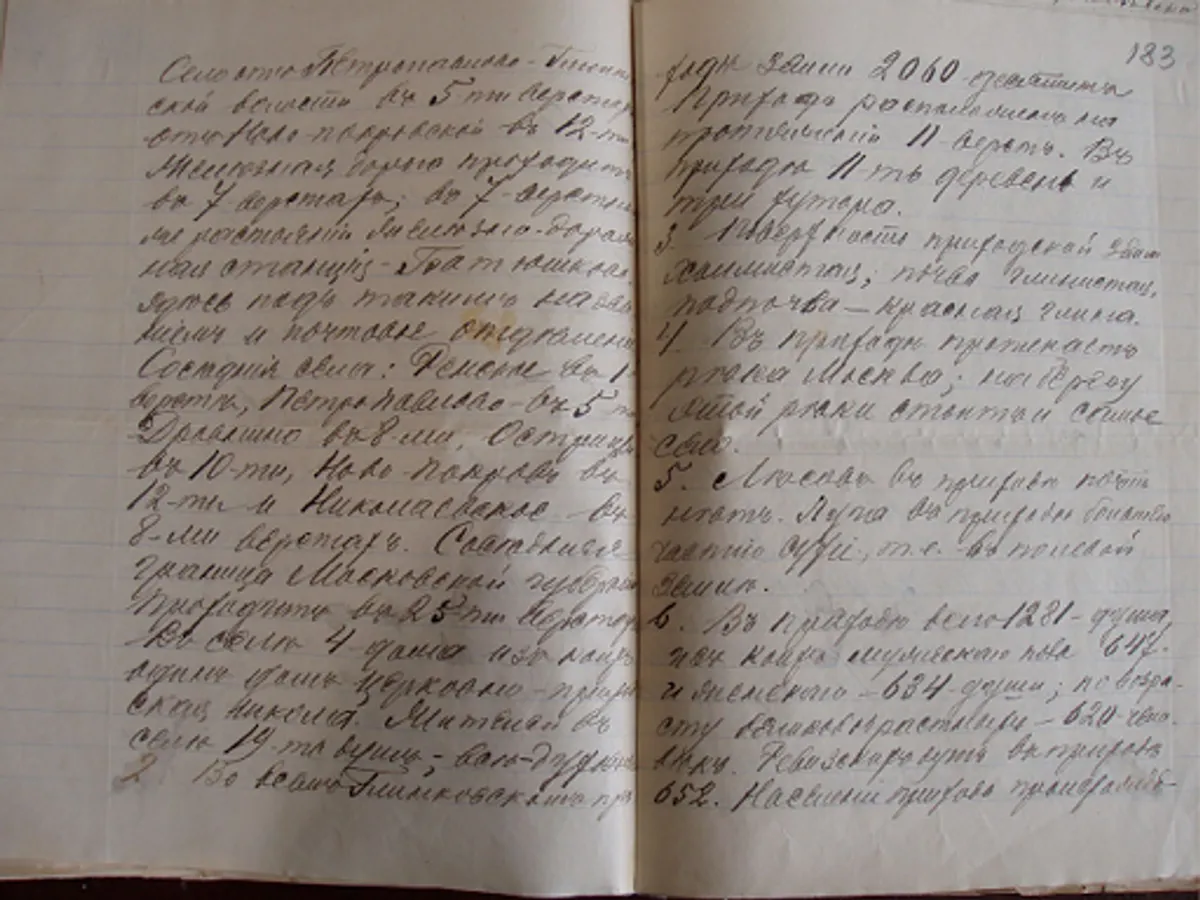 Село отъ Петропавлово-
ской волости въ 5-ти верстахъ
отъ Ново-покровской въ 12-ти
Желѣзная дорога проходитъ
въ 7 верстахъ; въ 7-верстно
мъ растояніи желѣзно-дорож
ная станція
здѣсь подъ такимъ назва
ніемъ и почтовое отдѣленіе
Сосѣднія села: въ 1
верстѣ, Петропавлово - въ 5
въ 8-ми,
въ 10-ти, Ново-Покровъ въ
12-ти и Николаевское - въ
8-ми верстахъ.
граница Московской губерніи
проходитъ въ 25-ти верстахъ
Въ селѣ 4 дома изъ коихъ
одинъ домъ церковно-приход
ская школа. Жителей въ
селѣ 19-ть душъ;
2 Во всемъ при
183
ходѣ земли 2060 десятинъ
Приходъ расположенъ на
протяженіи 11-верстъ. Въ
приходѣ 11-ть деревень и
три хутора.
3. Поверхность приходской земли
холмистая; почва глинистая,
подпочва — красная глина.
4. Въ приходѣ протекаетъ
рѣка Москва; на берегу
этой рѣки стоитъ и самое
село.
5. въ приходѣ почти
нѣтъ. Луга въ приходѣ большею
частію сухіе, т.е. въ полевой
землѣ.
6. Въ приходѣ всего 1281-душа,
изъ коихъ мужескаго пола 647.
и женскаго - 634 души; по возра-
сту - 620 чело
вѣкъ. въ приходѣ
652. Населеніе прихода